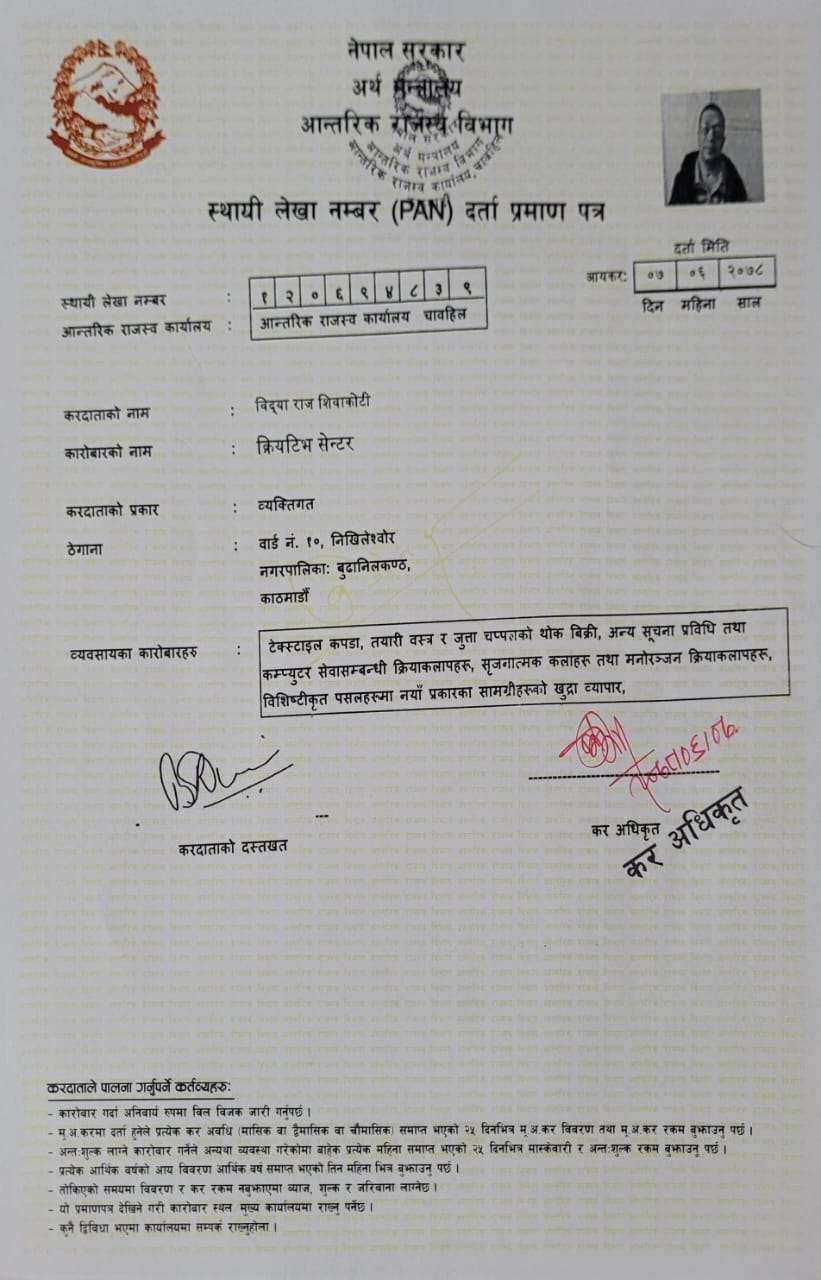 नेपाल सरकार
अर्थ मन्त्रालय
आन्तरिक राजस्व विभाग
स्थायी लेखा नम्बर (PAN) दर्ता प्रमाण पत्र
दर्ता मिति
आयकर: ०७ ०६ २०७८
दिन महिना साल
स्थायी लेखा नम्बर : १ २ ० ६ ९ ४ ८ ३ ९
आन्तरिक राजस्व कार्यालय : आन्तरिक राजस्व कार्यालय चावहिल
करदाताको नाम : विद्या राज शिवाकोटी
कारोबारको नाम : क्रियटिभ सेन्टर
करदाताको प्रकार : व्यक्तिगत
ठेगाना : वार्ड नं. १०, निखिलेश्वोर
नगरपालिका: बुढानिलकण्ठ,
काठमाडौं
व्यवसायका कारोबारहरु : टेक्स्टाइल कपडा, तयारी वस्त्र र जुत्ता चप्पलको थोक बिक्री, अन्य सूचना प्रविधि तथा
कम्प्युटर सेवासम्बन्धी क्रियाकलापहरू, सृजनात्मक कलाहरू तथा मनोरञ्जन क्रियाकलापहरू,
विशिष्टीकृत पसलहरूमा नयाँ प्रकारका सामग्रीहरूको खुद्रा व्यापार,
करदाताको दस्तखत
कर अधिकृत
कर अधिकृत
करदाताले पालना गर्नुपर्ने कर्तव्यहरु:
- कारोबार गर्दा अनिवार्य रुपमा बिल बिजक जारी गर्नुपर्छ ।
- मू.अ.करमा दर्ता हुनेले प्रत्येक कर अवधि (मासिक वा द्वैमासिक वा चौमासिक) समाप्त भएको २५ दिनभित्र मू.अ.कर विवरण तथा मू.अ.कर रकम बुझाउनु पर्छ ।
- अन्तःशुल्क लाग्ने कारोबार गर्नेले अन्यथा व्यवस्था गरेकोमा बाहेक प्रत्येक महिना समाप्त भएको २५ दिनभित्र मास्केवारी र अन्तःशुल्क रकम बुझाउनु पर्छ ।
- प्रत्येक आर्थिक वर्षको आय विवरण आर्थिक वर्ष समाप्त भएको तिन महिना भित्र बुझाउनु पर्छ ।
- तोकिएको समयमा विवरण र कर रकम नबुझाएमा ब्याज, शुल्क र जरिवाना लाग्नेछ ।
- यो प्रमाणपत्र देखिने गरी कारोबार स्थल मुख्य कार्यालयमा राख्नु पर्नेछ ।
- कुनै द्विविधा भएमा कार्यालयमा सम्पर्क राख्नुहोला ।